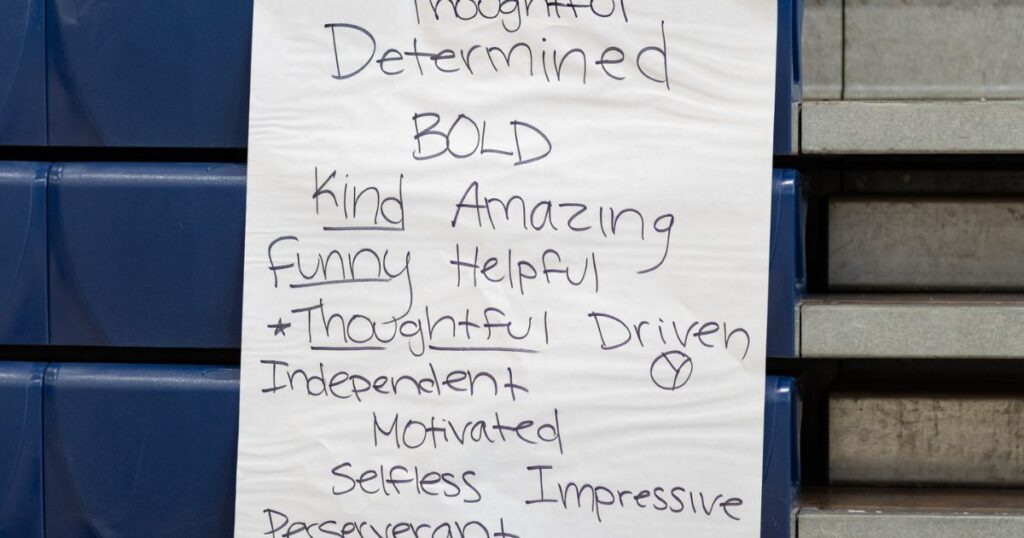 Thoughtful
Determined
BOLD
Kind Amazing
funny Helpful
*Thoughtful Driven
Y
Independent
Motivated
Selfless Impressive
Perserverant